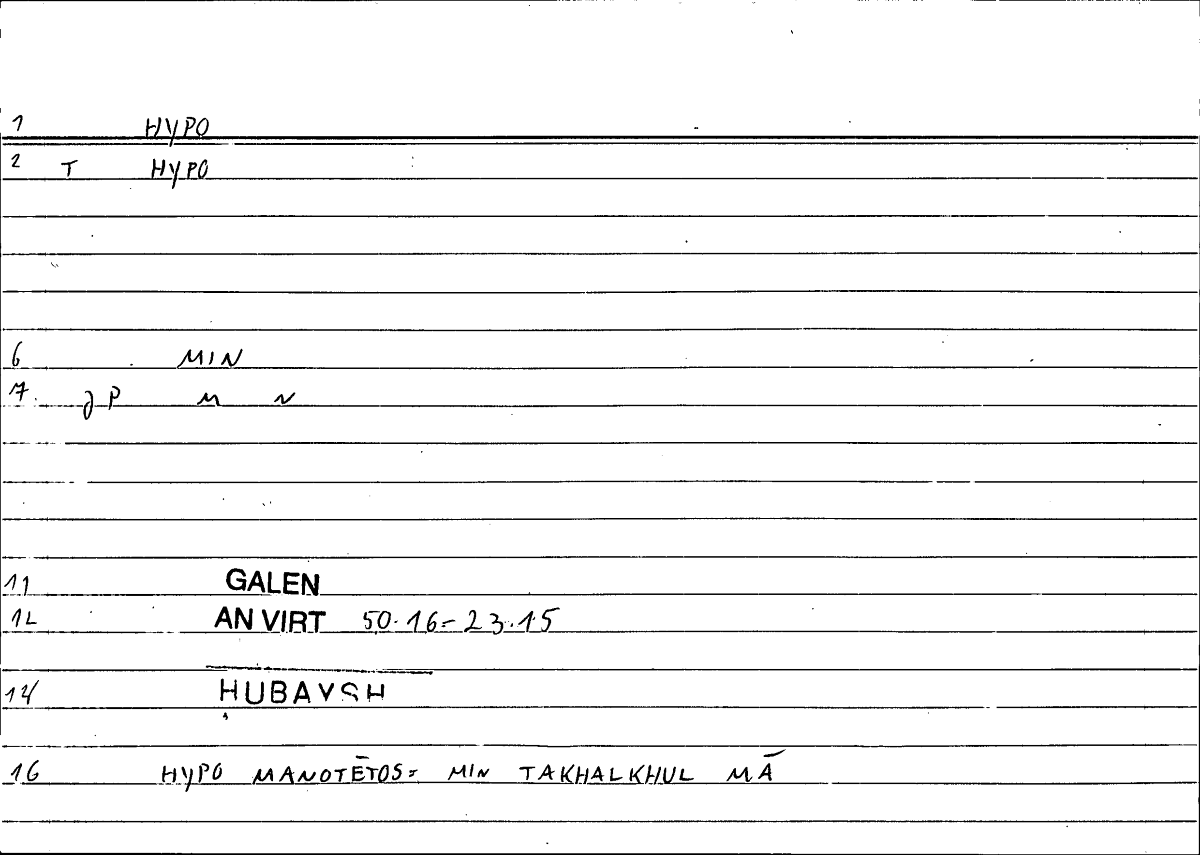 1 HYPO
2 T HYPO
6 MIN
7 JP M N
11 GALEN
12 AN VIRT 50.16 = 23.15
14 HUBAYSH
16 HYPO MANOTĒTOS = MIN TAKHALKHUL MĀ